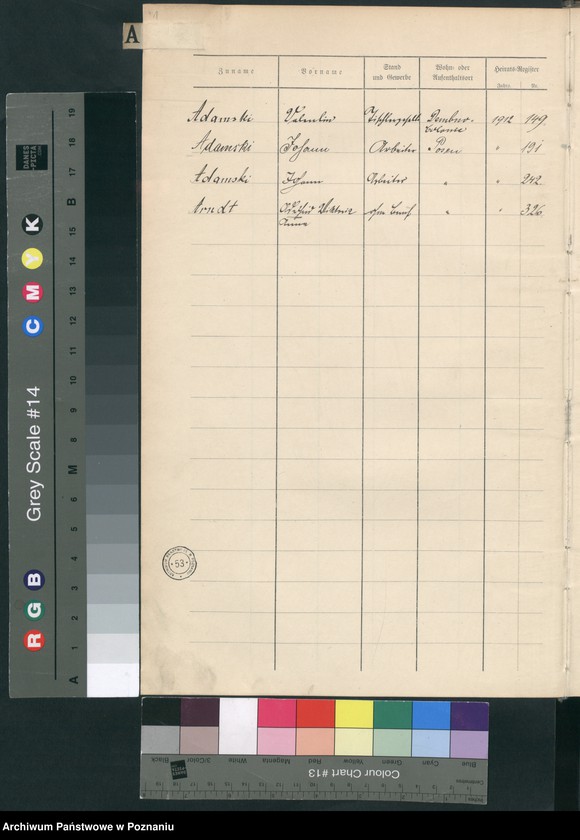 A
Zuname Vorname Stand und Gewerbe Wohn- oder Aufenthaltsort Heirats-Register
Jahrg. Nr.
Adamski Valentin Tischlergeselle Dembsen- 1912 149
Colonie
Adamski Johann Arbeiter Posen " 191
Adamski Johann Arbeiter " " 242
Arndt Viktoria ohne Beruf " " 326
Anna
53
DANES
PICTA
.COM
19
18
17
B
16
15
14
13
12
11
10
9
8
M
7
6
5
4
3
2
1
A
K
Y
M
C
Grey Scale #14
B
G
R
Colour Chart #13
Black
3/Color
White
Magenta
Red
Yellow
Green
Cyan
Blue
Centimetres
Inches
Archiwum Państwowe w Poznaniu